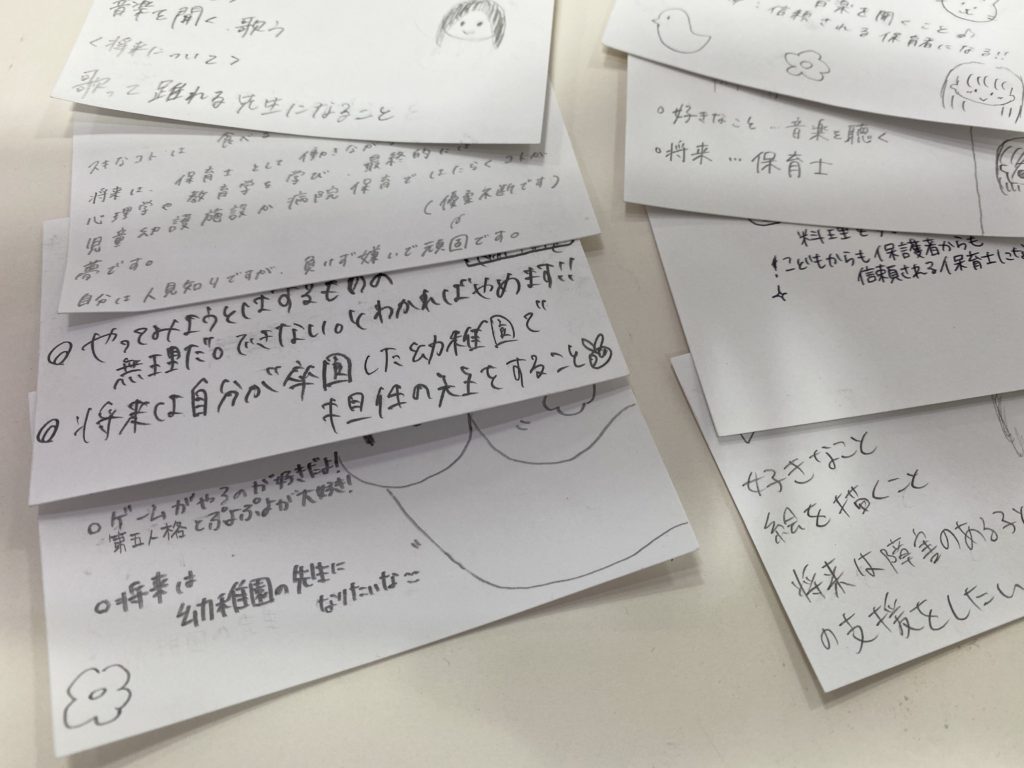 音楽を聞く、歌う
<将来について>
歌って踊れる先生になること
スキなコトは 食べる
将来は、保育士として働きなが
心理学や教育学を学び、最終的には
児童幼護施設か病院保育ではたらくコトが
夢です。
(優柔不断です)
自分は人見知りですが、負けず嫌いで頑固です。
@ やってみようとはするものの
無理だ。できない。とわかればやめます!!
@ 将来は自分が卒園した幼稚園で
担任の先生をすること
○ ゲームがやるのが好きだよ!
第五人格とぷよぷよが大好き!
○ 将来は
幼稚園の先生に
なりたいな
音楽を聞くこと♪
:信頼される保育者になる!!
○ 好きなこと…音楽を聴く
○ 将来…保育士
料理を
! こどもからも保護者からも
信頼される保育士にな
好きなこと
絵を描くこと
将来は障害のある子ど
の支援をしたい